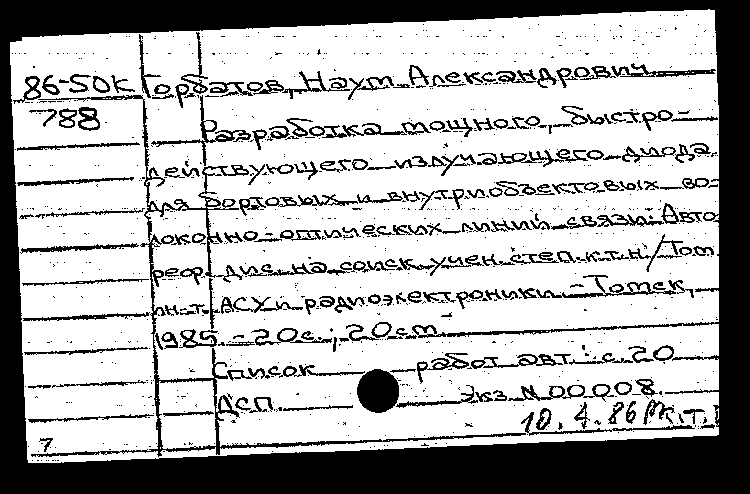 86-50К Горбатов, Наум Александрович
788 Разработка мощного, быстро-
действующего излучающего диода
для бортовых и внутриобъектовых во-
локонно-оптических линий связи: Авто-
реф. дис. на соиск. учен. степ. к.т.н. / Том.
ин-т АСУ и радиоэлектроники. - Томск,
1985. - 20 с.; 20 см.
Список работ авт.: с. 20
ДСП Экз. N 00008.
10.4.86
7